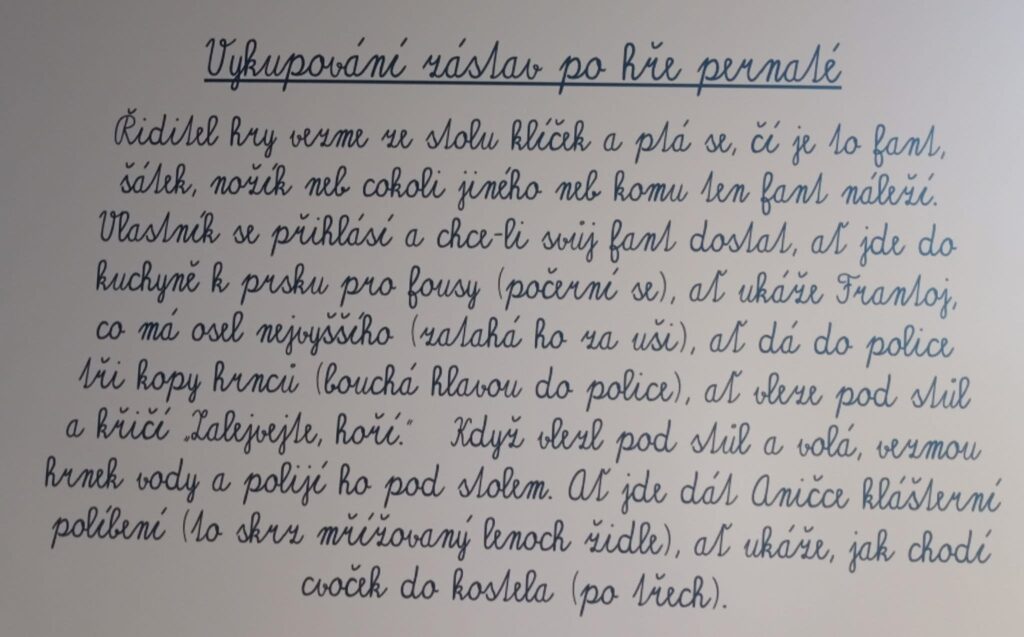 Vykupování zástav po hře pernaté
Řiditel hry vezme ze stolu klíček a ptá se, čí je to fant,
šátek, nožík neb cokoli jiného neb komu ten fant náleží.
Vlastník se přihlásí a chce-li svůj fant dostat, ať jde do
kuchyně k prsku pro fousy (počerní se), ať ukáže Frantoj,
co má osel nejvyššího (zatahá ho za uši), ať dá do police
tři kopy hrnců (bouchá hlavou do police), ať vleze pod stůl
a křičí „Zalejvejte, hoří.“ Když vlezl pod stůl a volá, vezmou
hrnek vody a polijí ho pod stolem. Ať jde dát Aničce klášterní
políbení (to skrz mřížovaný lenoch židle), ať ukáže, jak chodí
cvoček do kostela (po třech).